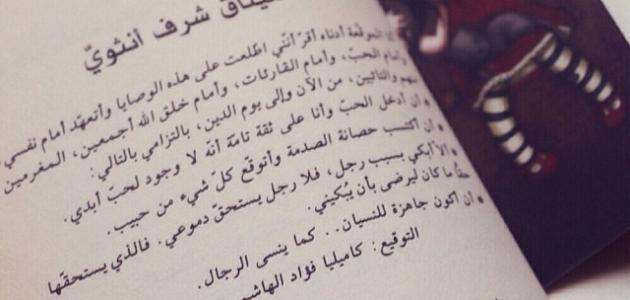 ميثاق شرف أنثويّ
الموقّعة أدناه أقرّ أنّني اطّلعت على هذه الوصايا وأتعهّد أمام نفسي
وأمام الحبّ، وأمام القارئات، وأمام خلق الله أجمعين، المغرمين
منهم والتائبين، من الآن وإلى يوم الدين، بالتزامي بالتالي:
• أن أدخل الحبّ وأنا على ثقة تامّة أنّه لا وجود لحبّ أبدي.
• أن أكتسب حصانة الصدمة وأتوقّع كلّ شيء من حبيب.
• ألاّ أبكي بسبب رجل، فلا رجل يستحقّ دموعي. فالذي يستحقّها
حقاً ما كان ليرضى بأن يُبكيني.
• أن أكون جاهزة للنسيان.. كما ينسى الرجال.
التوقيع: كاميليا فؤاد الهاشم